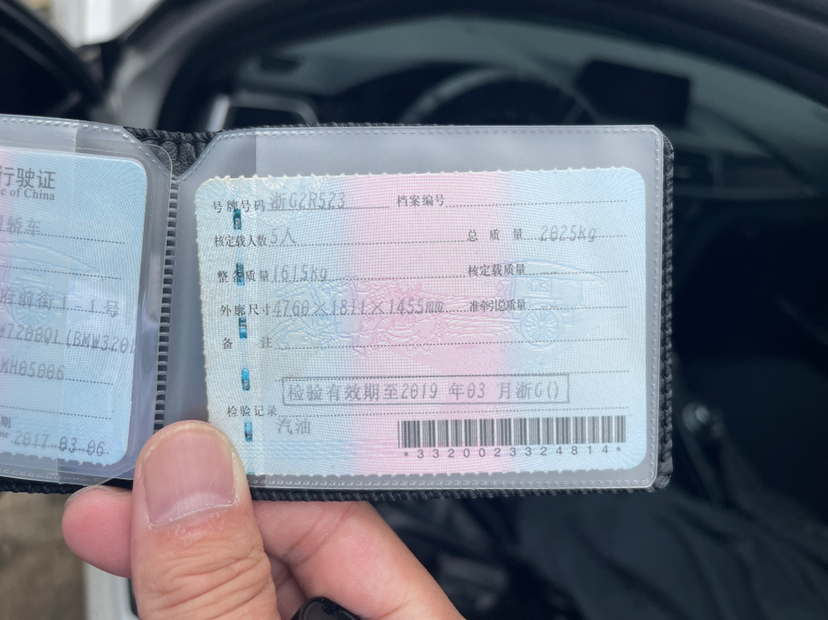 行驶证
e of China
轿车
府前街1 1号
MH05006
2017-03-06
号牌号码 浙G2R523 档案编号
核定载人数 5人 总质量 2025kg
整备质量 1615kg 核定载质量
外廓尺寸 4760×1811×1455mm 准牵引总质量
备注
检验有效期至2019 年03 月浙G()
检验记录
汽油
*3320023324814*